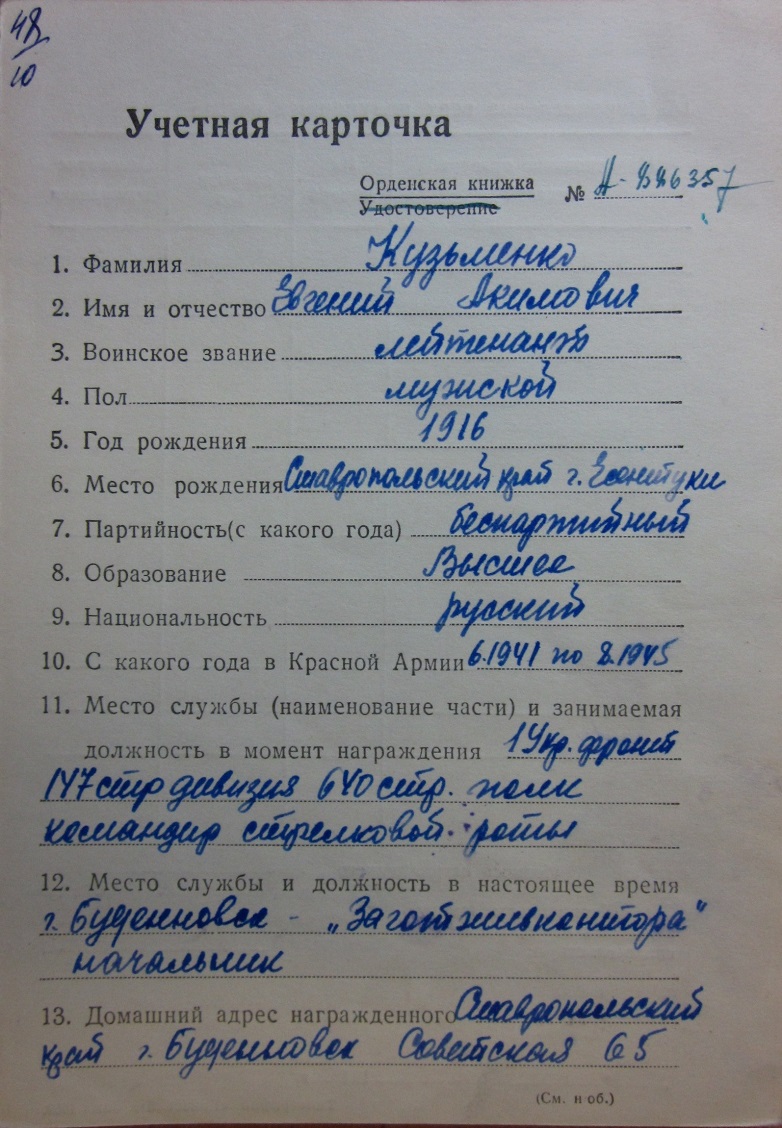 48
10
Учетная карточка
Орденская книжка № А-886357
Удостоверение
1. Фамилия Кузьменко
2. Имя и отчество Евгений Акимович
3. Воинское звание лейтенант
4. Пол мужской
5. Год рождения 1916
6. Место рождения Ставропольский край г. Ессентуки
7. Партийность(с какого года) беспартийный
8. Образование Высшее
9. Национальность русский
10. С какого года в Красной Армии 6.1941 по 8.1945
11. Место службы (наименование части) и занимаемая
должность в момент награждения 1 Укр. фронт
147 стр дивизия 640 стр. полк
командир стрелковой роты
12. Место службы и должность в настоящее время
г. Буденновск - „Заготживконтора"
начальник
13. Домашний адрес награжденного Ставропольский
край г. Буденновск Советская 65
(См. н об.)